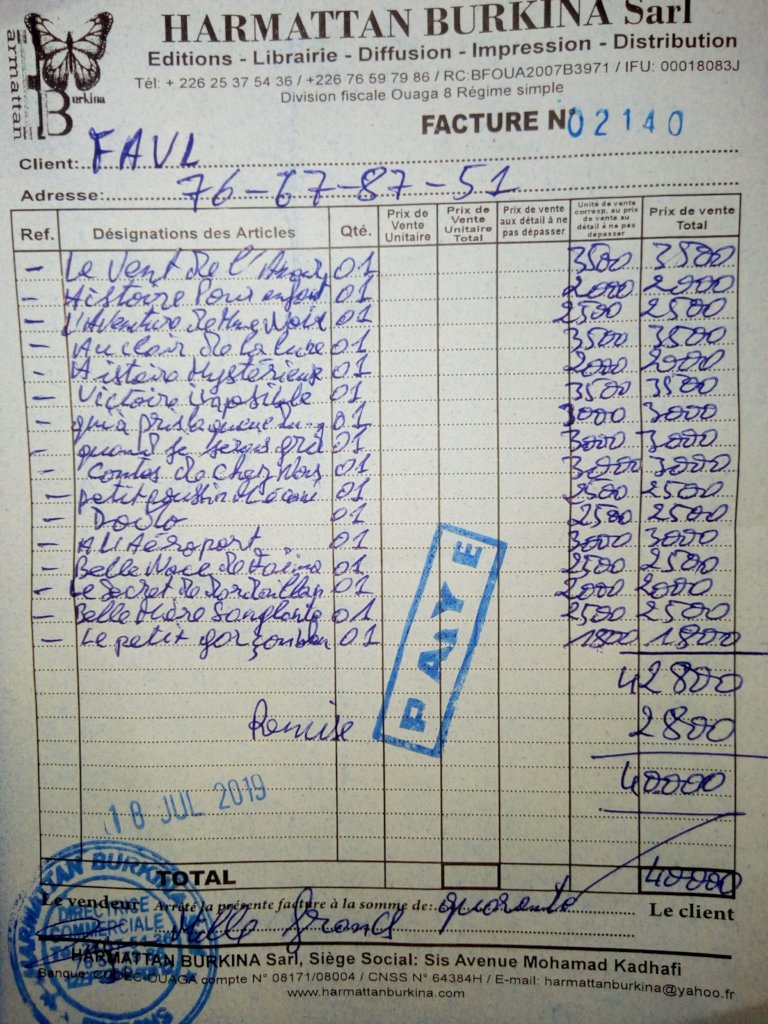 HARMATTAN BURKINA Sarl
Editions - Librairie - Diffusion - Impression - Distribution
Tél: + 226 25 37 54 36 / +226 76 59 79 86 / RC:BFOUA2007B3971 / IFU: 00018083J
Division fiscale Ouaga 8 Régime simple
armattan Burkina
FACTURE N° 02140
Client: FAVL
Adresse: 76-67-87-51
Ref. Désignations des Articles Qté. Prix de Vente Unitaire Prix de Vente Unitaire Total Prix de vente aux détail à ne pas dépasser Unité de vente corresp. au prix de vente au détail à ne pas dépasser Prix de vente Total
- Le Vent de l' 01 3500 3500
- Histoire Pour enfant 01 2000 2000
- L'Aventure de 01 2500 2500
- Au clair de la lune 01 3500 3500
- Histoire Mystérieuse 01 2000 2000
- Victoire impossible 01 3500 3500
- qui a pris la queue du 01 3000 3000
- quand je serai gra 01 3000 3000
- Contes de chez Nous 01 3000 3000
- petit poussin 01 2500 2500
- 01 2500 2500
- A l'Aéroport 01 3000 3000
- Belle Noce de 01 2500 2500
- Le Secret de 01 2000 2000
- Belle Mère Sanglante 01 2500 2500
- Le petit garçon 01 1800 1800
42800
Remise 2800
40000
PAYE
18 JUL 2019
TOTAL 40000
Le vendeur Arrêté la présente facture à la somme de: quarante Le client
Mille francs
HARMATTAN BURKINA
DIRECTRICE
COMMERCIALE
HARMATTAN BURKINA Sarl, Siège Social: Sis Avenue Mohamad Kadhafi
Banque: OUAGA compte N° 08171/08004 / CNSS N° 64384H / E-mail: harmattanburkina@yahoo.fr
www.harmattanburkina.com